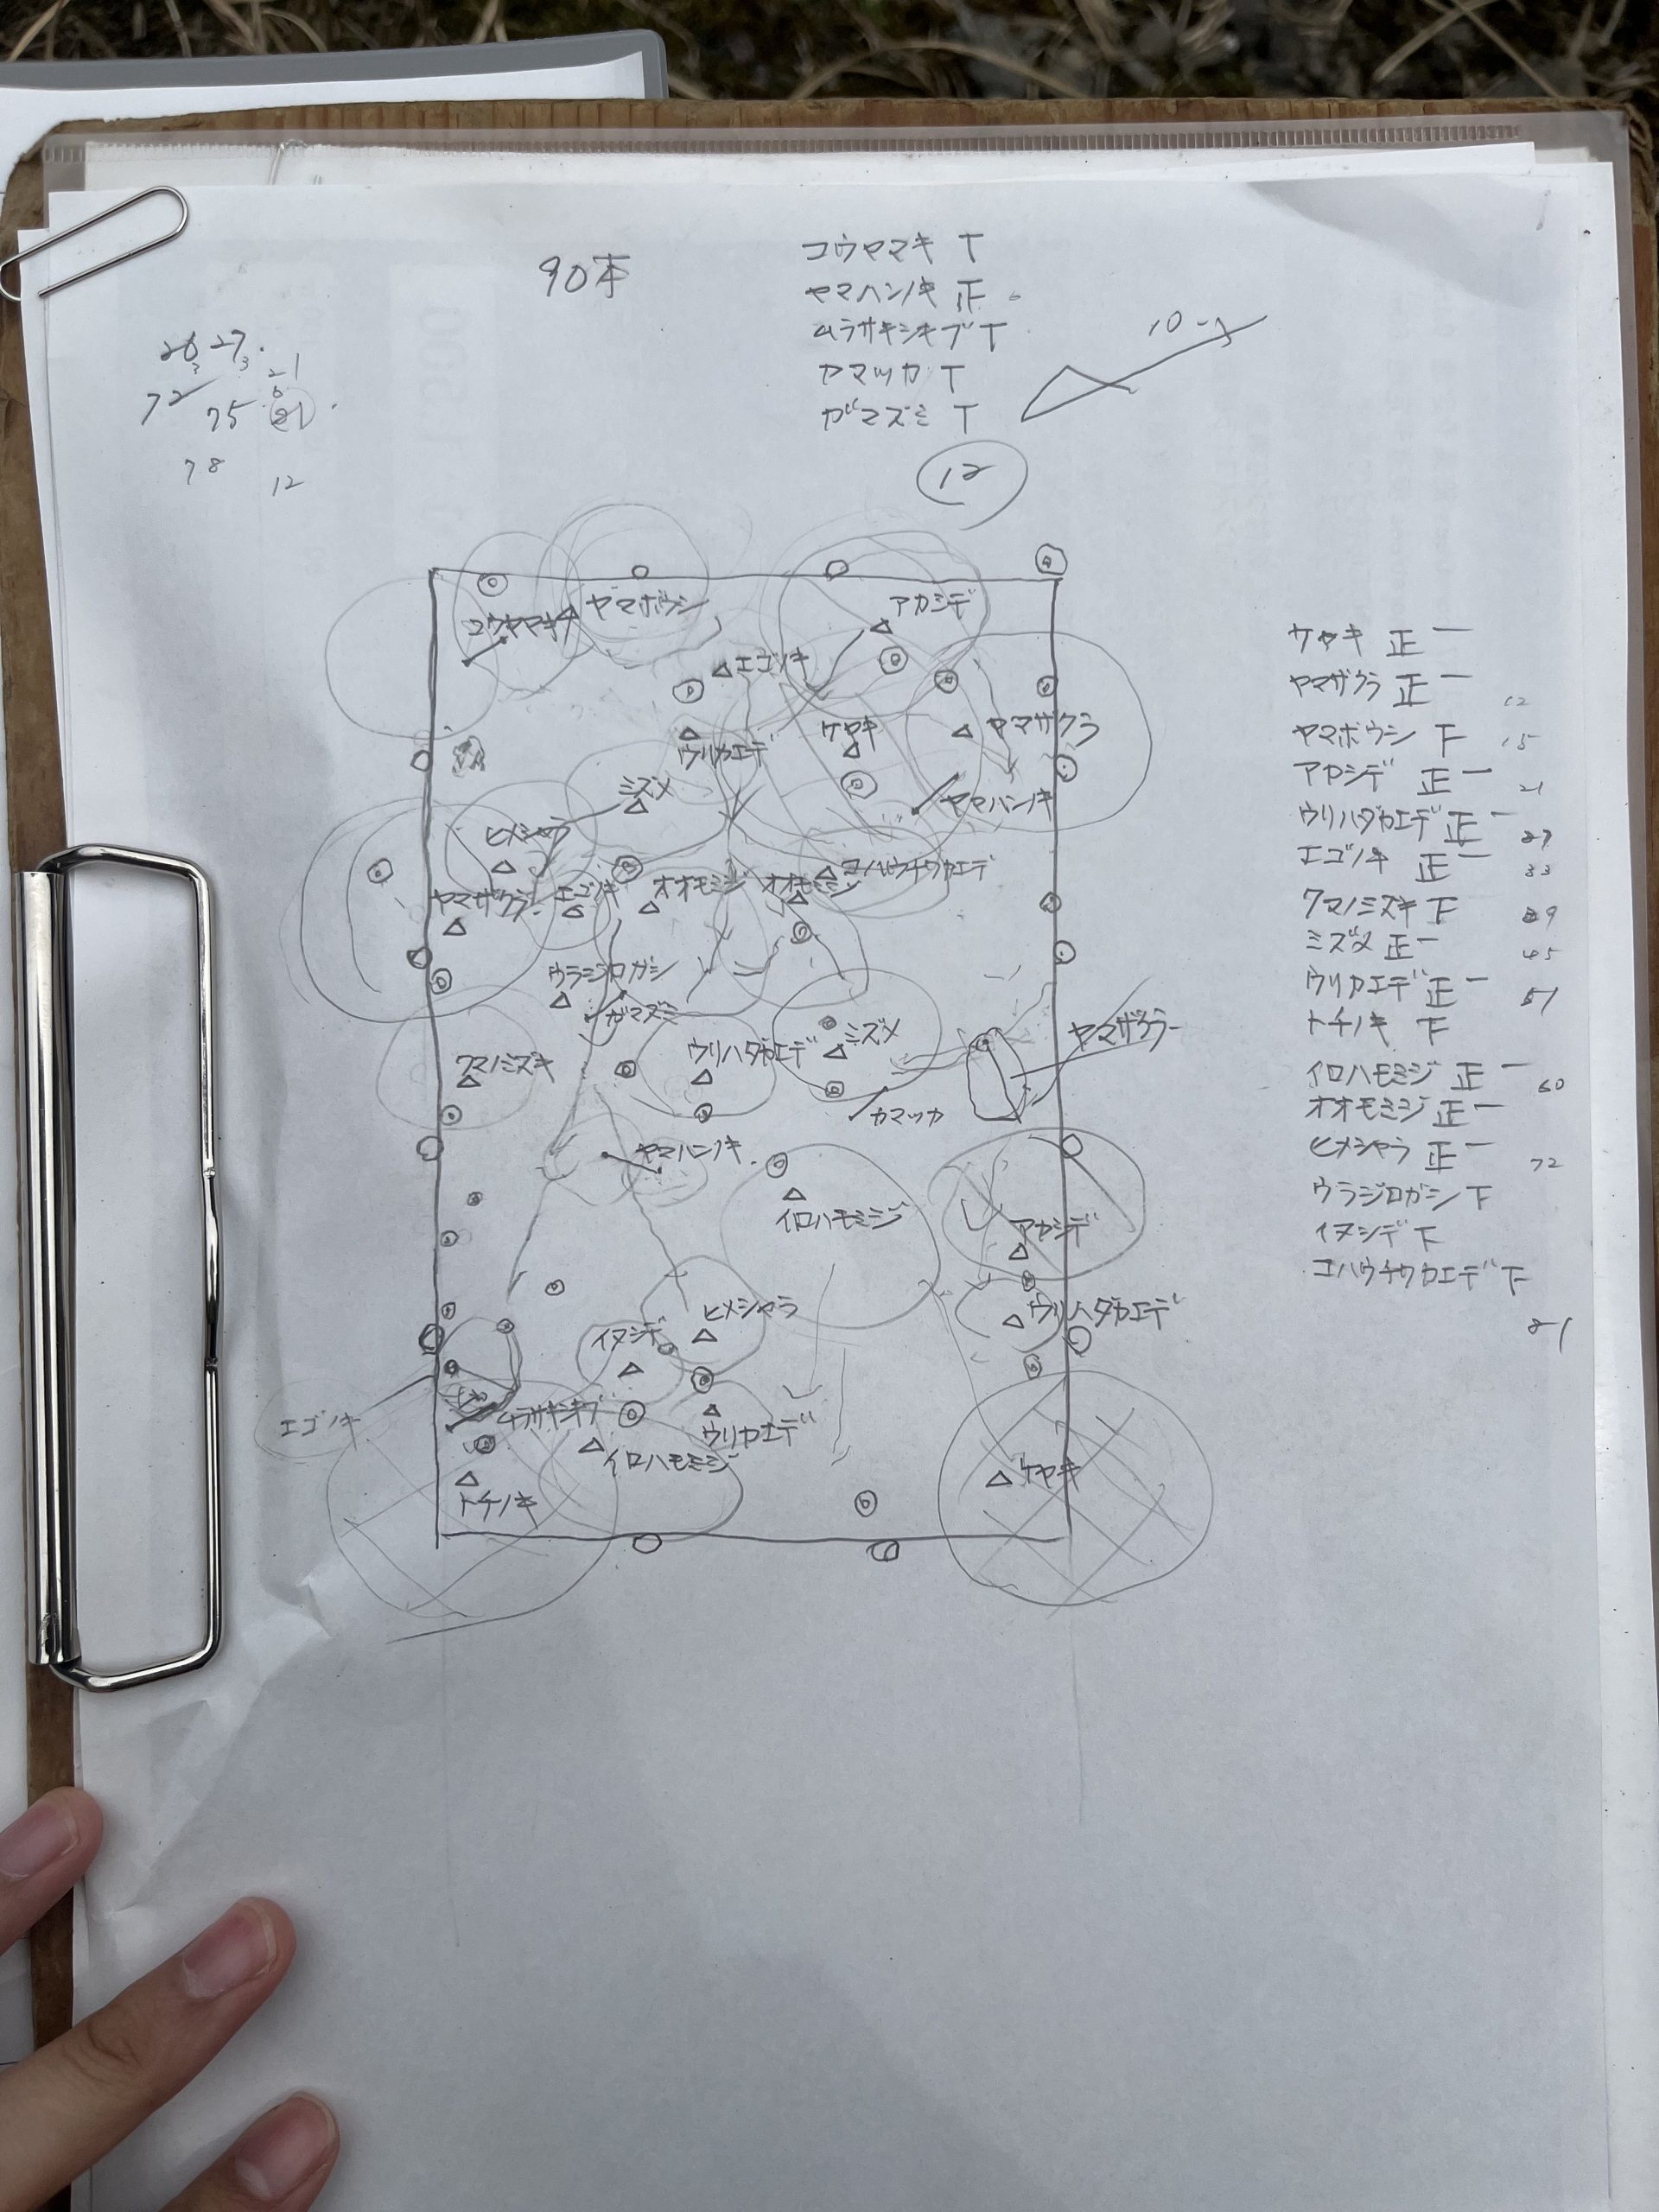 90本
コウヤマキ T
ヤマハンノキ 正
ムラサキシキブ T
カマツカ T
ガマズミ T
10→
12
27
21
72
75
78
12
コウヤマキ
ヤマボウシ
アカシデ
エゴノキ
ウリカエデ
ケヤキ
ヤマザクラ
ミズメ
ヤマハンノキ
ヒメシャラ
コハウチワカエデ
ヤマザクラ
エゴノキ
オオモミジ
オオモミジ
ウラジロガシ
ガマズミ
クマノミズキ
ウリハダカエデ
ミズメ
ヤマザクラ
カマツカ
ヤマハンノキ
イロハモミジ
アカシデ
ヒメシャラ
ウリハダカエデ
イヌシデ
エゴノキ
ムラサキシキブ
ウリカエデ
イロハモミジ
トチノキ
ケヤキ
ケヤキ 正一
ヤマザクラ 正一 12
ヤマボウシ 下 15
アカシデ 正一 21
ウリハダカエデ 正一 27
エゴノキ 正一 33
クマノミズキ 下
ミズメ 正一 45
ウリカエデ 正一 51
トチノキ 下
イロハモミジ 正一 60
オオモミジ 正一
ヒメシャラ 正一 72
ウラジロガシ 下
イヌシデ 下
コハウチワカエデ 下
81